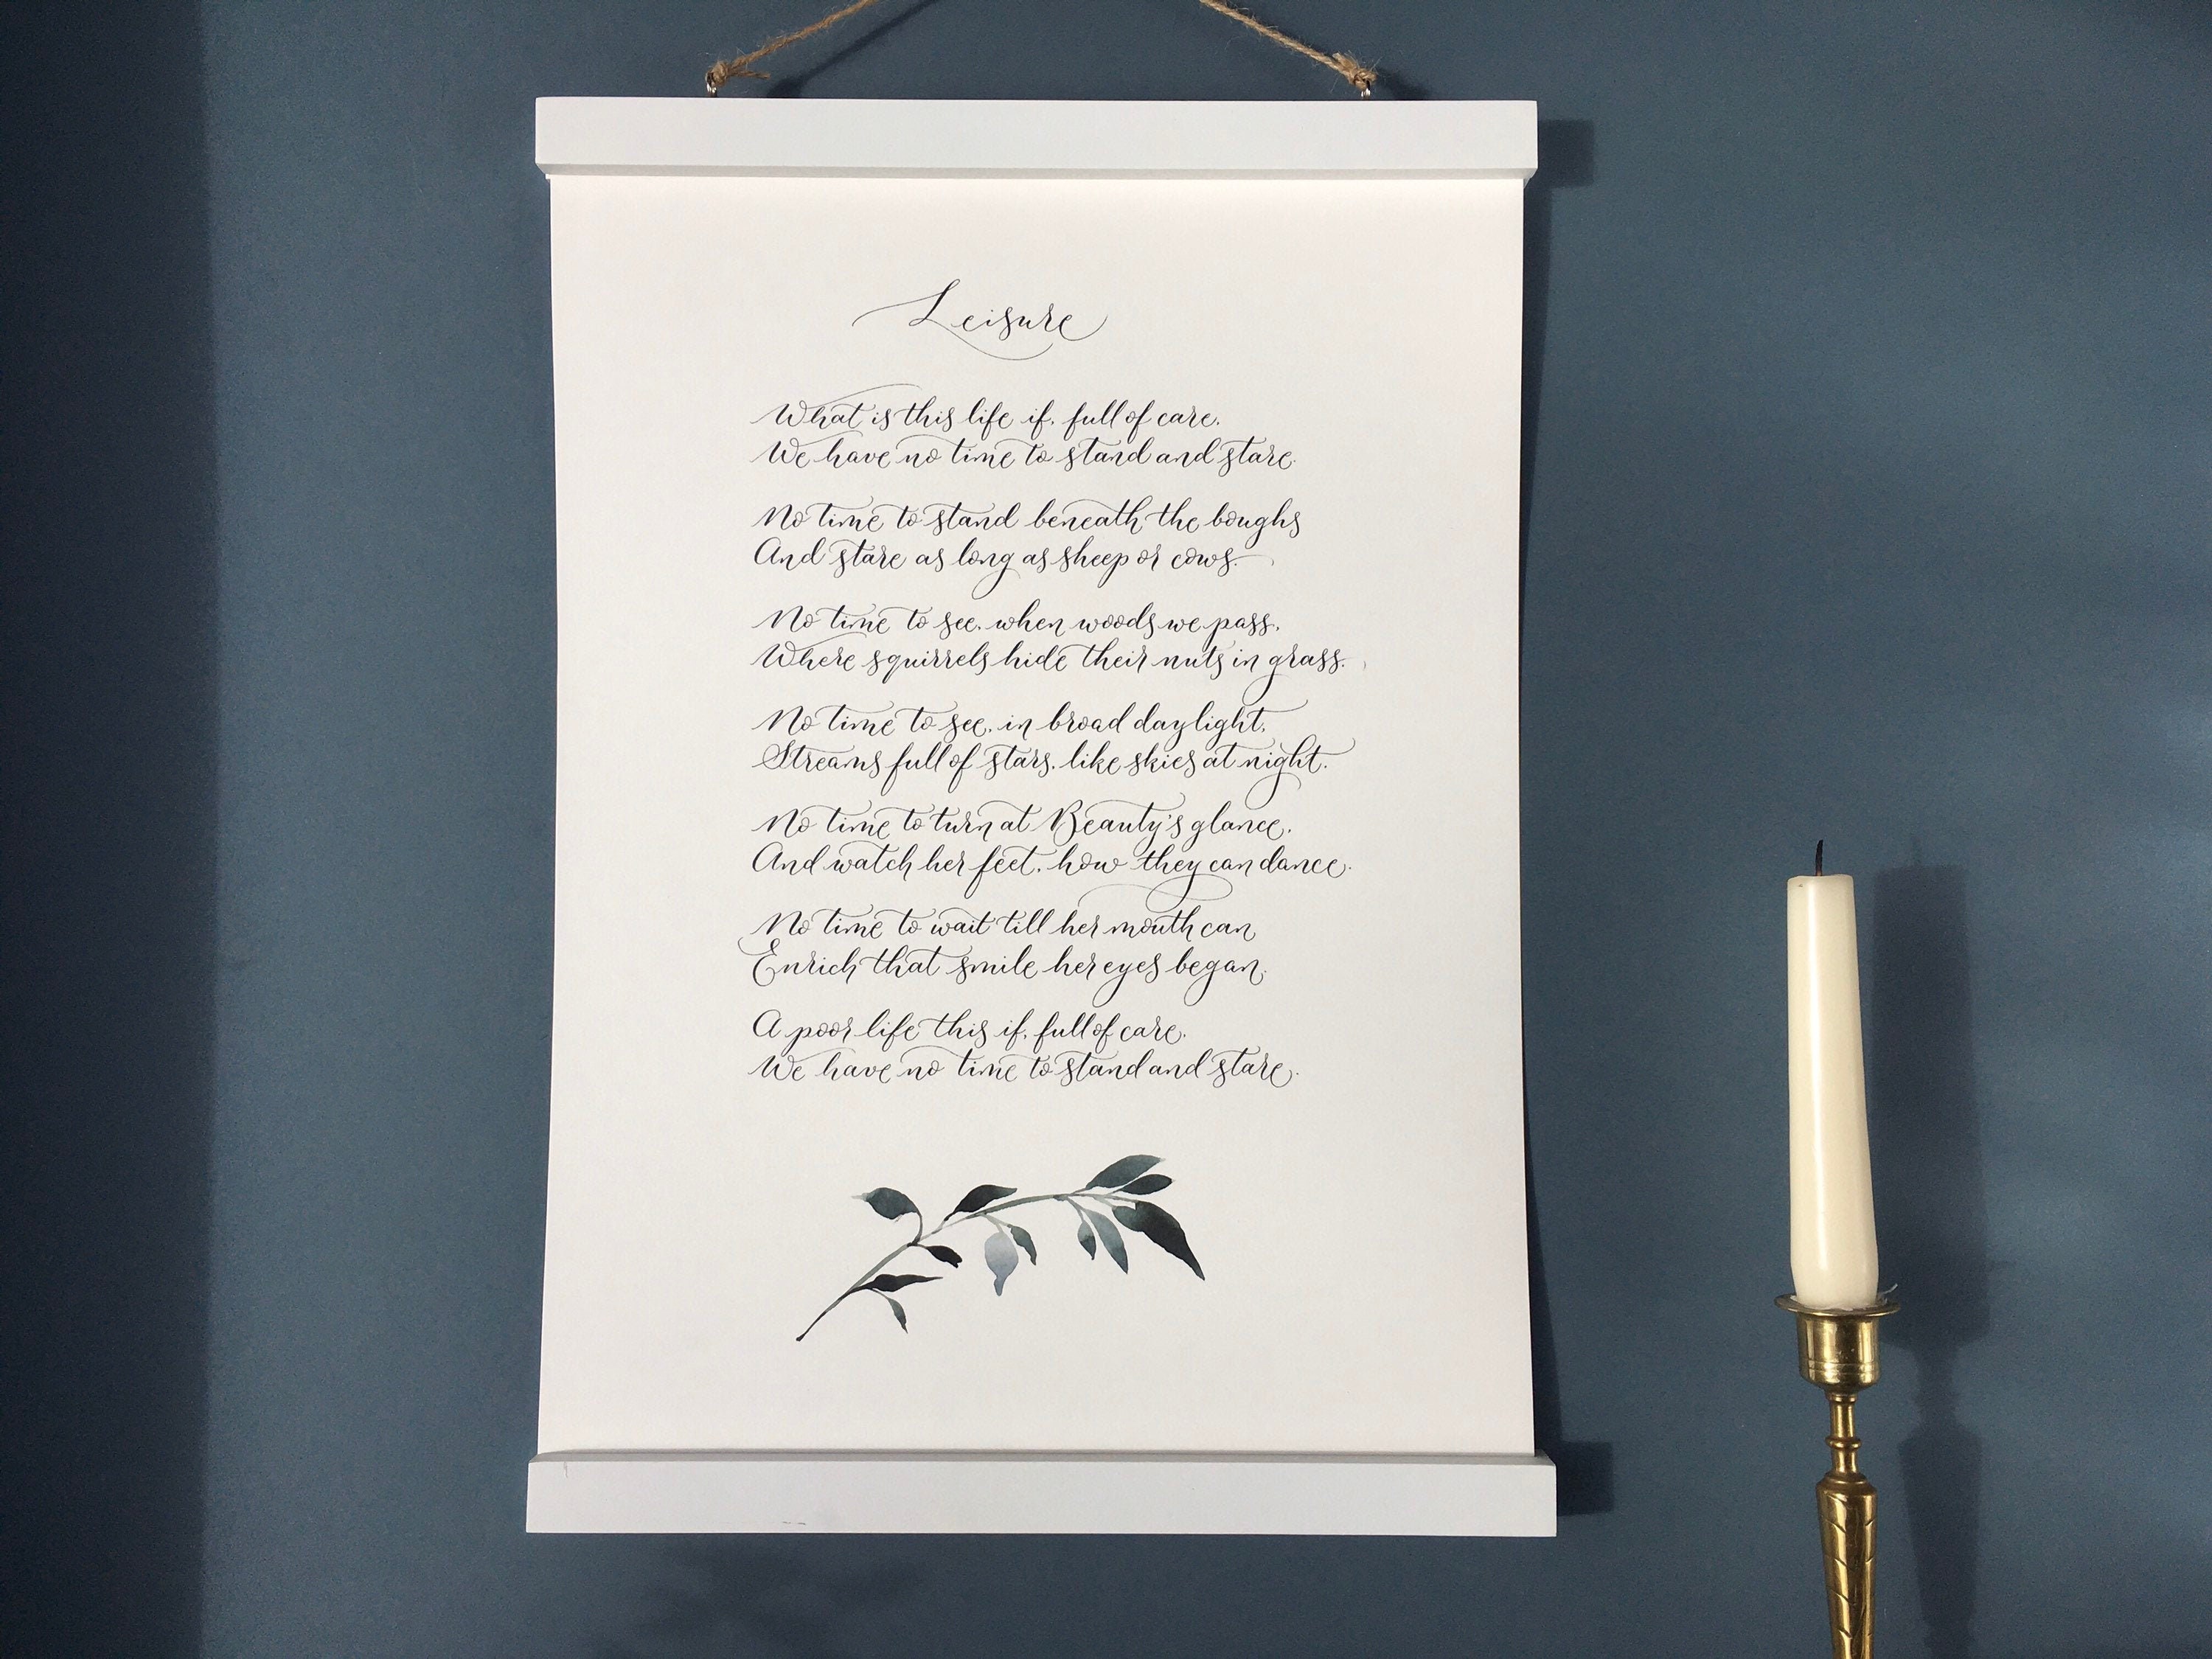 Leisure
What is this life if, full of care,
We have no time to stand and stare.
No time to stand beneath the boughs
And stare as long as sheep or cows.
No time to see, when woods we pass,
Where squirrels hide their nuts in grass.
No time to see, in broad daylight,
Streams full of stars, like skies at night.
No time to turn at Beauty's glance,
And watch her feet, how they can dance.
No time to wait till her mouth can
Enrich that smile her eyes began.
A poor life this if, full of care,
We have no time to stand and stare.